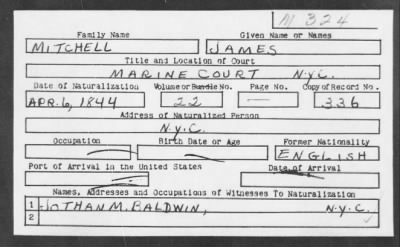 M 324
Family Name Given Name or Names
MITCHELL JAMES
Title and Location of Court
MARINE COURT N.Y.C.
Date of Naturalization Volume or Bundle No. Page No. Copy of Record No.
APR. 6, 1844 22 — 336
Address of Naturalized Person
N.Y.C.
Occupation Birth Date or Age Former Nationality
— — ENGLISH
Port of Arrival in the United States Date of Arrival
— —
Names, Addresses and Occupations of Witnesses To Naturalization
1 JOTHAN M. BALDWIN, N.Y.C.
2